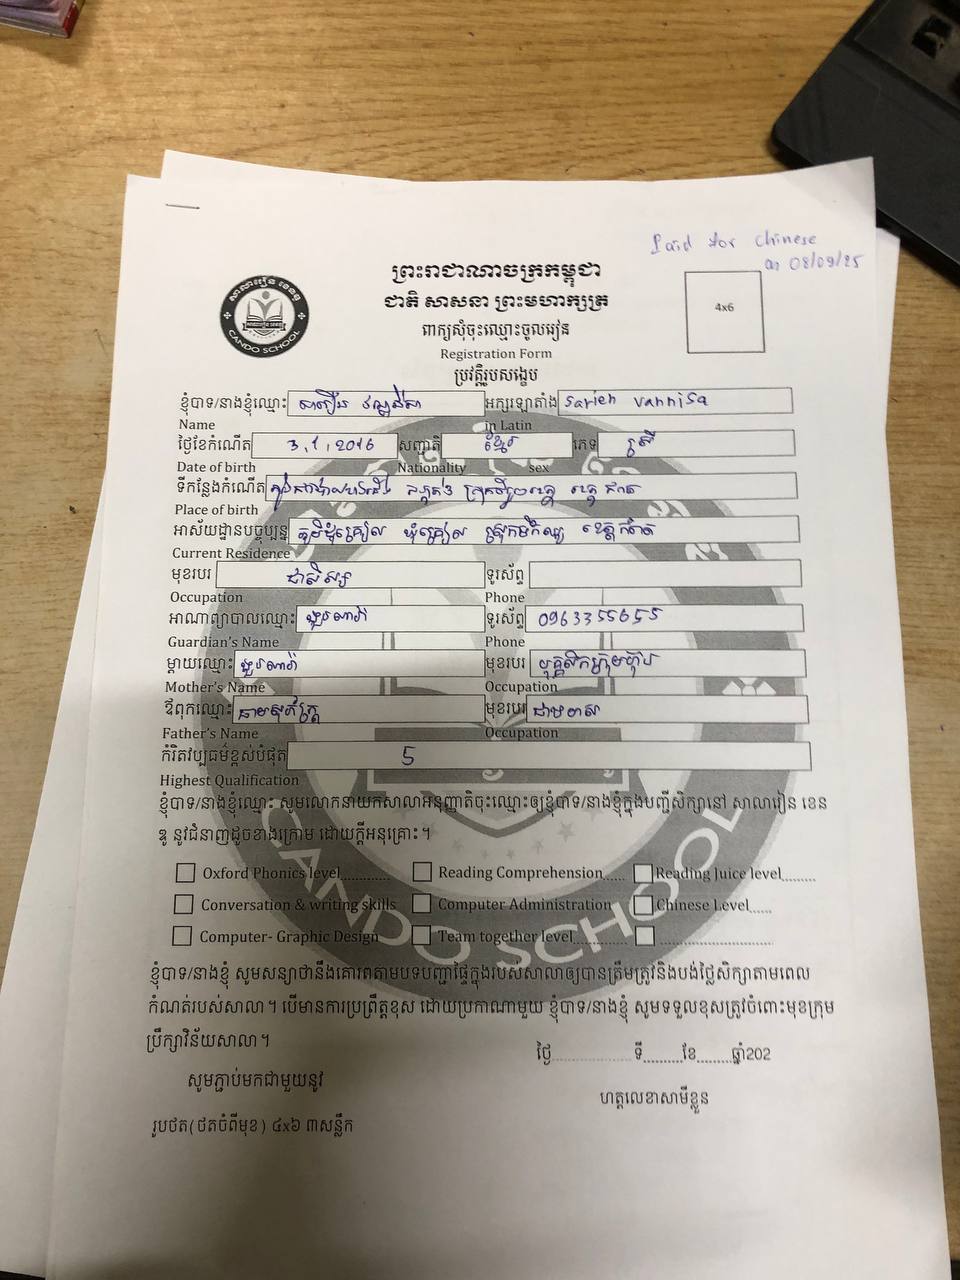 Paid for Chinese
on 08/09/25
ព្រះរាជាណាចក្រកម្ពុជា
ជាតិ សាសនា ព្រះមហាក្សត្រ
ពាក្យសុំចុះឈ្មោះចូលរៀន
Registration Form
ប្រវត្តិរូបសង្ខេប
4x6
សាលារៀន ខេនឌូ
CANDO SCHOOL
ខ្ញុំបាទ/នាងខ្ញុំឈ្មោះ សារឿន វណ្ណនីសា អក្សរឡាតាំង Sarien vannisa
Name in Latin
ថ្ងៃខែកំណើត 3,1,2016 សញ្ជាតិ ខ្មែរ ភេទ ស្រី
Date of birth Nationality sex
ទីកន្លែងកំណើត
Place of birth
អាស័យដ្ឋានបច្ចុប្បន្ន ភូមិជុំគ្រៀល ឃុំគ្រៀល ស្រុក ខេត្តកំពត
Current Residence
មុខរបរ ជាសិស្ស ទូរស័ព្ទ
Occupation Phone
អាណាព្យាបាលឈ្មោះ ទូរស័ព្ទ 0963355655
Guardian's Name Phone
ម្តាយឈ្មោះ មុខរបរ
Mother's Name Occupation
ឪពុកឈ្មោះ មុខរបរ
Father's Name Occupation
កំរិតវប្បធម៌ខ្ពស់បំផុត 5
Highest Qualification
ខ្ញុំបាទ/នាងខ្ញុំឈ្មោះ សូមលោកនាយកសាលាអនុញ្ញាតិចុះឈ្មោះឲ្យខ្ញុំបាទ/នាងខ្ញុំក្នុងបញ្ជីសិក្សានៅ សាលារៀន ខេន
ឌូ នូវជំនាញដូចខាងក្រោម ដោយក្តីអនុគ្រោះ។
Oxford Phonics level............ Reading Comprehension..... Reading Juice level.........
Conversation & writing skills Computer Administration Chinese Level......
Computer- Graphic Design Team together level..............
CANDO SCHOOL
ខ្ញុំបាទ/នាងខ្ញុំ សូមសន្យាថានឹងគោរពតាមបទបញ្ជាផ្ទៃក្នុងរបស់សាលាឲ្យបានត្រឹមត្រូវនិងបង់ថ្លៃសិក្សាតាមពេល
កំណត់របស់សាលា។ បើមានការប្រព្រឹត្តខុស ដោយប្រកាណាមួយ ខ្ញុំបាទ/នាងខ្ញុំ សូមទទួលខុសត្រូវចំពោះមុខក្រុម
ប្រឹក្សាវិន័យសាលា។
ថ្ងៃ.....................ទី..........ខែ.........ឆ្នាំ202
សូមភ្ជាប់មកជាមួយនូវ
ហត្ថលេខាសាមីខ្លួន
រូបថត(ថតចំពីមុខ) ៤x៦ ៣សន្លឹក